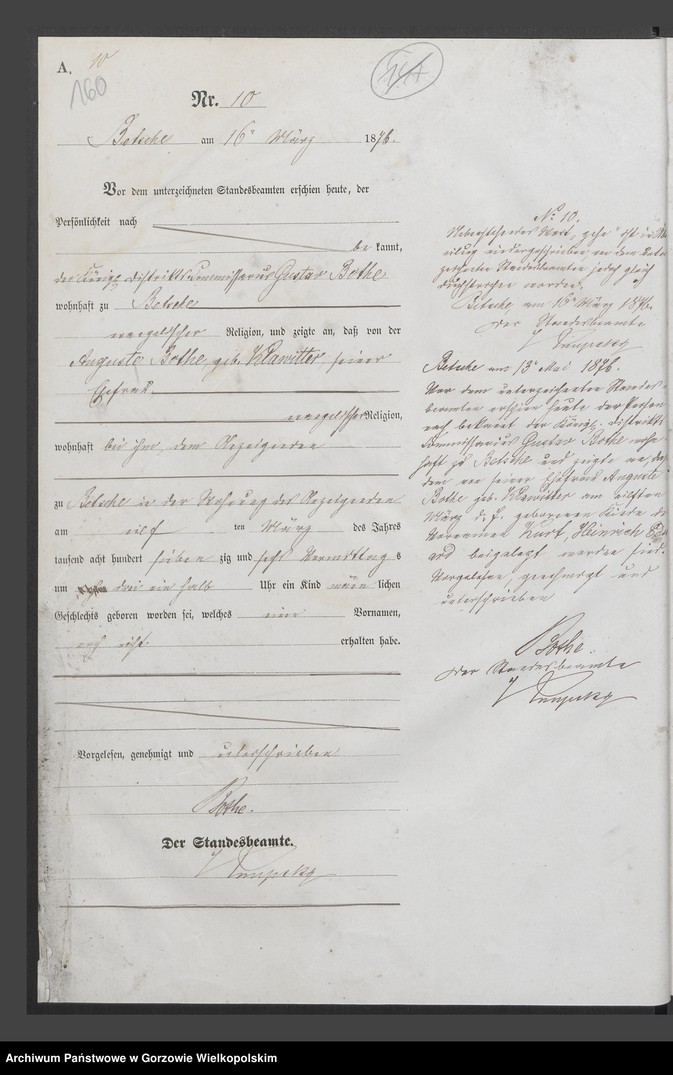 A.
10
160
Nr. 10
Betsche am 16n März 1876.
Vor dem unterzeichneten Standesbeamten erschien heute, der
Persönlichkeit nach
be kannt,
der Königl. Distrikts Commissarius Gustav Bothe
wohnhaft zu Betsche
evangelischer Religion, und zeigte an, daß von der
Auguste Bothe, geb. Klawitter seiner
Ehefrau
evangelischer Religion,
wohnhaft bei ihm, dem Anzeigenden
zu Betsche in der Wohnung des Anzeigenden
am eilf ten März des Jahres
tausend acht hundert sieben zig und sechs Vormittag s
um drei ein halb Uhr ein Kind männ lichen
Geschlechts geboren worden sei, welches einen Vornamen,
noch nicht erhalten habe.
Vorgelesen, genehmigt und unterschrieben
Bothe.
Der Standesbeamte.
No 10.
Nebenstehendes Wort, zehn ist in
niedergeschrieben von dem unter-
zeichneten Standesbeamten jedoch gleich
durchstrichen worden.
Betsche, am 16n März 1876.
Der Standesbeamte
Betsche am 13n Mai 1876.
Vor dem unterzeichneten Standes-
beamten erschien heute der Person
nach bekannt der Königl. Distrikts
Commissarius Gustav Bothe wohn-
haft zu Betsche und zeigte an, daß
dem von seiner Ehefrau Auguste
Bothe geb. Klawitter am eilften
März d. J. geborenen Kinde die
Vornamen Kurt, Heinrich
beigelegt worden sind.
Vorgelesen, genehmigt und
unterschrieben
Bothe.
Der Standesbeamte
Archiwum Państwowe w Gorzowie Wielkopolskim